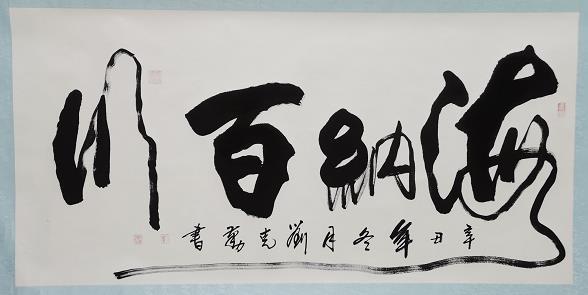 海納百川
辛丑年冬月劉克勤書